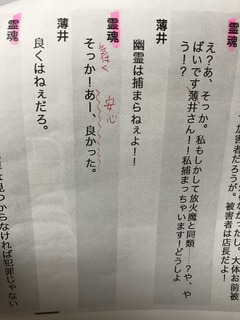 なかったし、大体お前
加害者だろうが。被害者は店長だよ!
霊魂
え?あ、そっか。私もしかして放火魔と同類……?や、や
ばいです薄井さん!!私捕まっちゃいます!どうしよ
う!?
薄井
幽霊は捕まらねぇよ!!
霊魂
安心
そっか!あー、良かった。
薄井
良くはねぇだろ。
霊魂
は見つからなければ犯罪じゃない